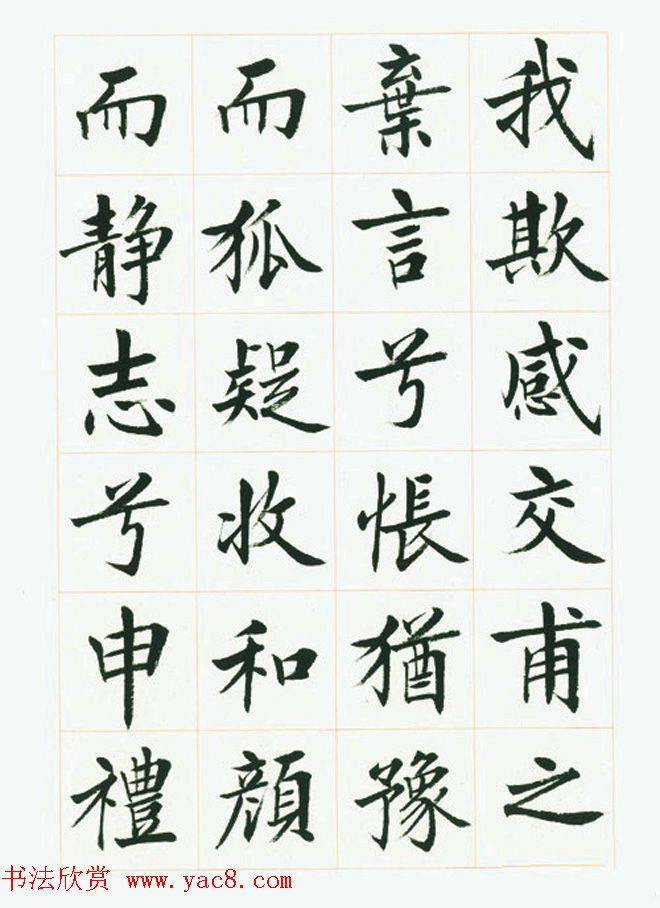 我欺感交甫之
棄言兮悵猶豫
而狐疑收和顔
而静志兮申禮
书法欣赏 www.yac8.com